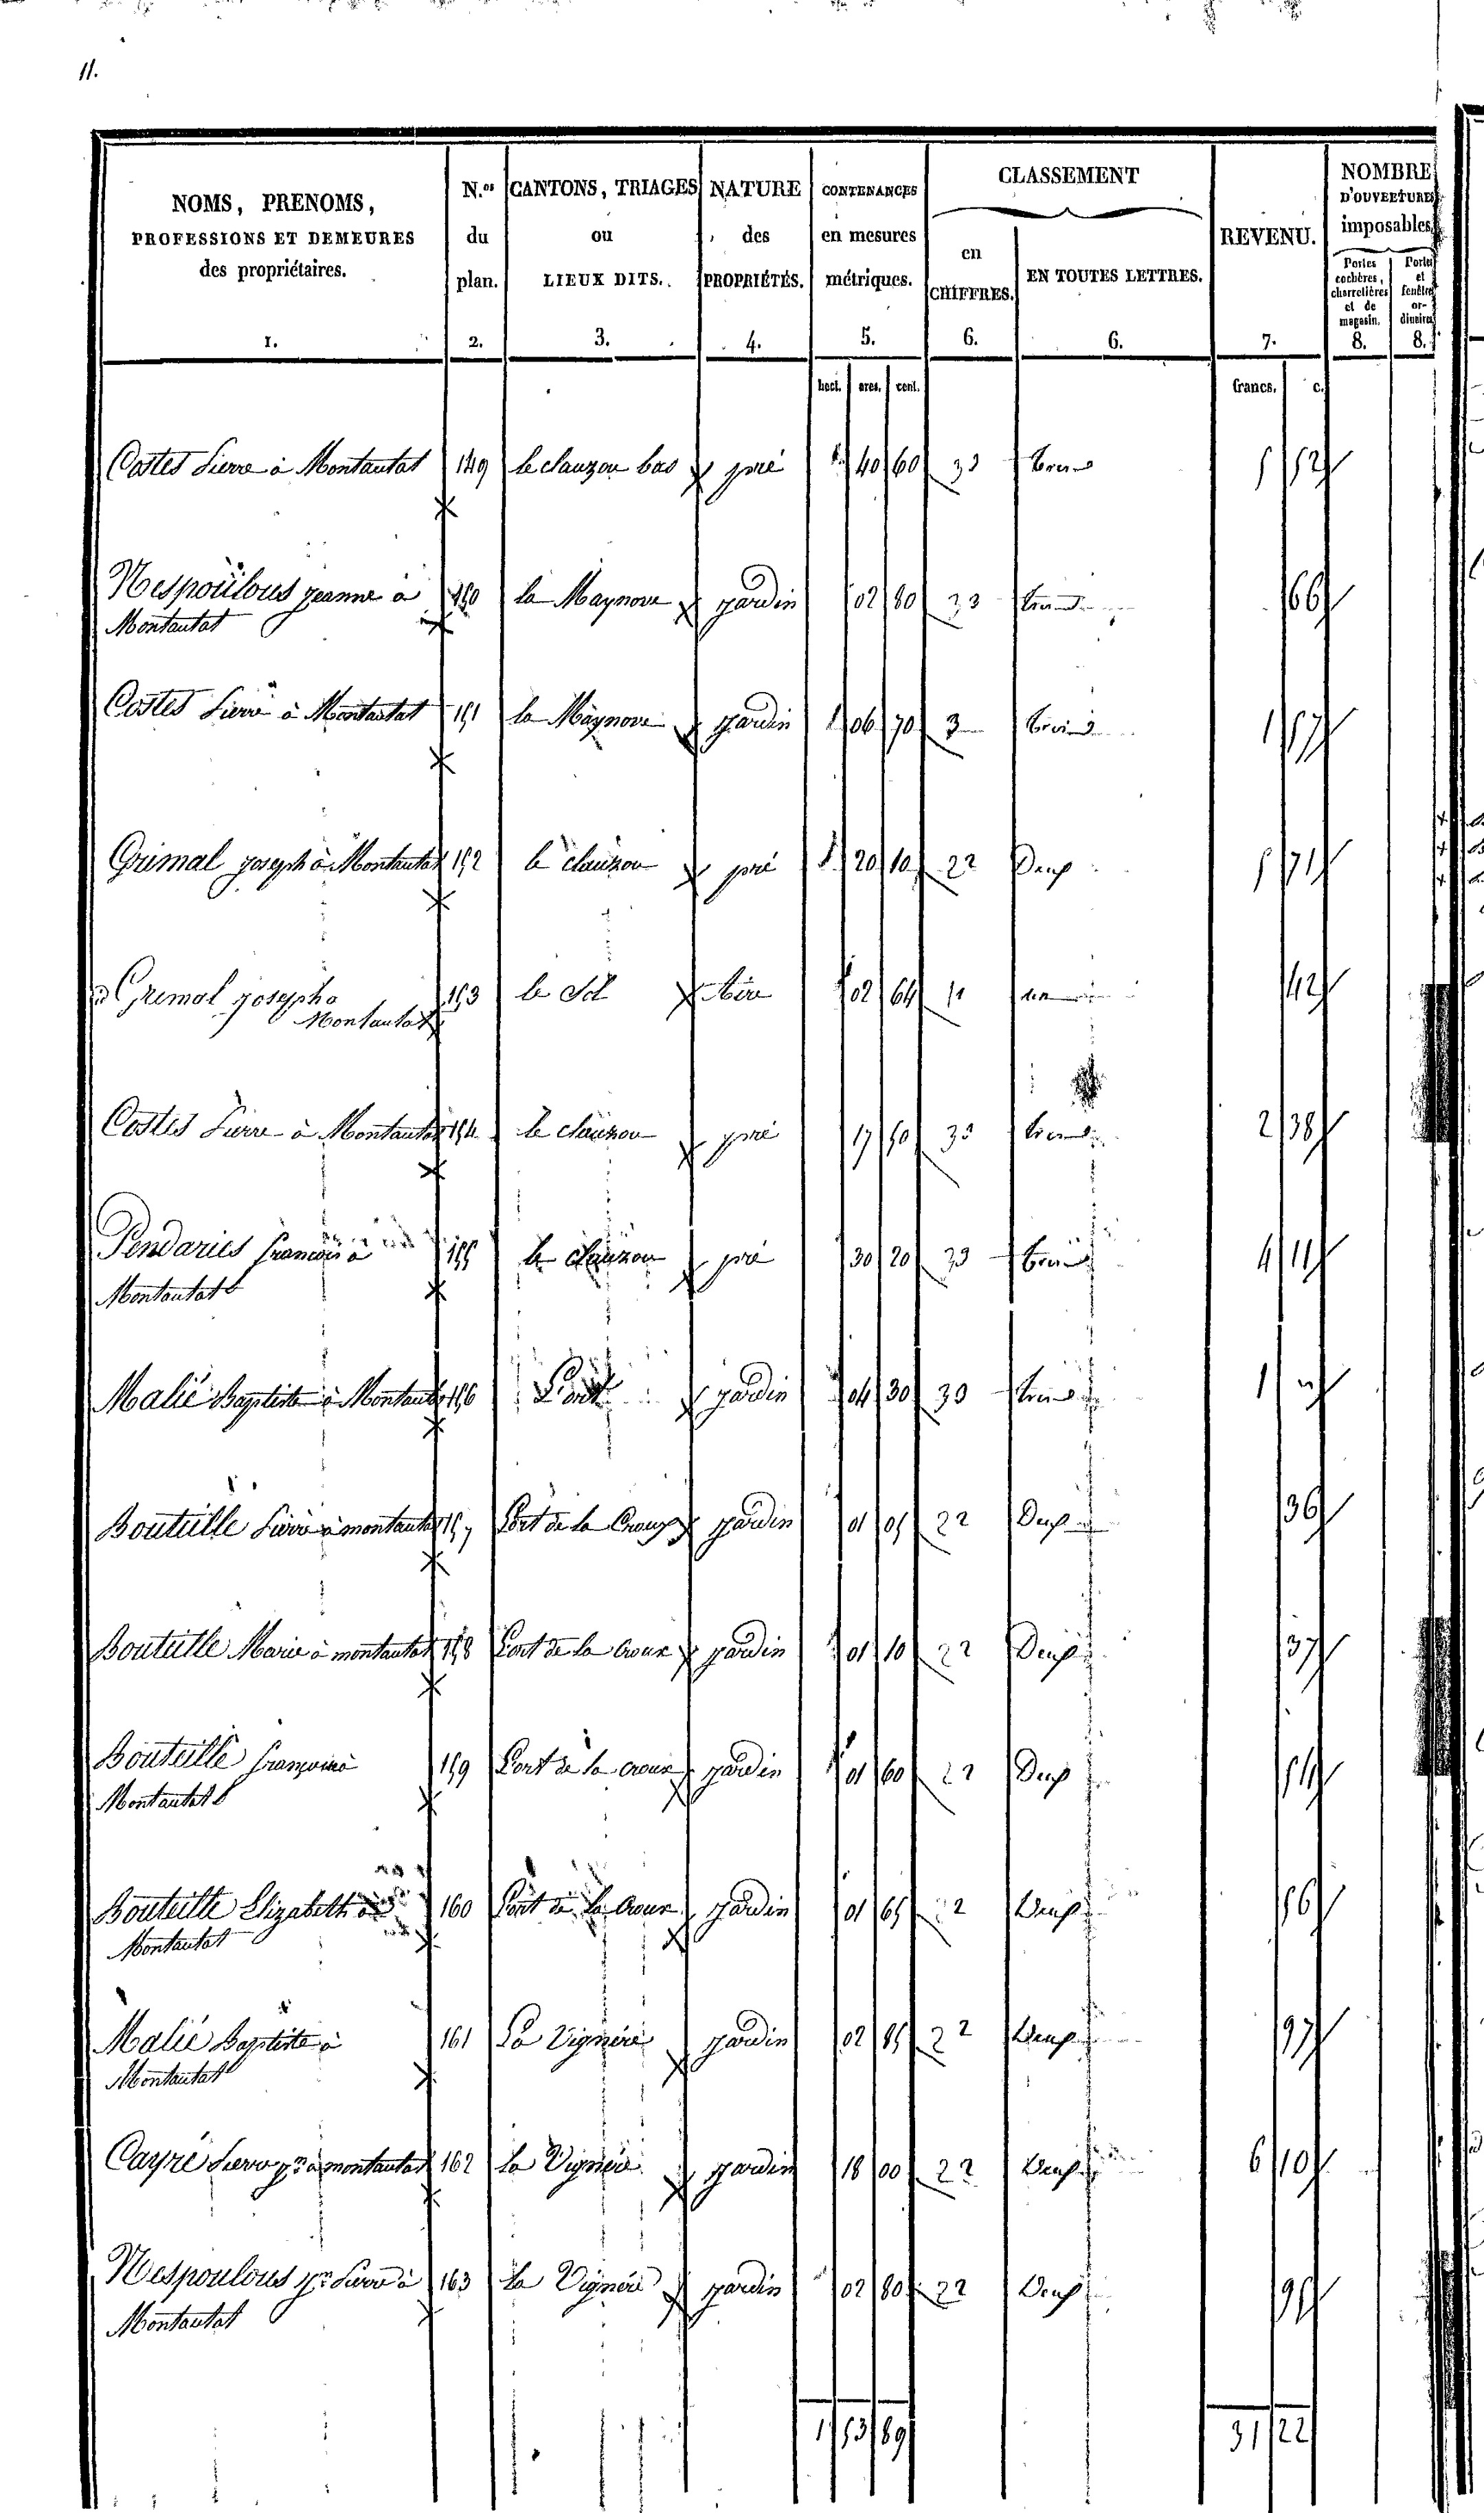 11.
NOMS, PRENOMS, PROFESSIONS ET DEMEURES des propriétaires. 1.
N.os du plan. 2.
CANTONS, TRIAGES ou LIEUX DITS. 3.
NATURE des PROPRIÉTÉS. 4.
CONTENANCES en mesures métriques. 5.
CLASSEMENT
en CHIFFRES. 6.
EN TOUTES LETTRES. 6.
REVENU. 7.
NOMBRE D'OUVERTURES imposables.
Portes cochères, charretières et de magasin. 8.
Portes et fenêtres ordinaires 8.
hect. ares. cent. francs. c.
Costes Pierre à Montautat 149 le clauzou bas pré 40 60 33 5 52
Nespoulous jeanne à 150 la Maynove jardin 02 80 33 66
Montautat
Costes Pierre à Montautat 151 la Maynove jardin 06 70 3 1 57
Grimal joseph à Montautat 152 le clauzou pré 20 10 22 Deux 5 71
Grimal joseph à 153 le Sol 02 64 11 42
Montautat
Costes Pierre à Montautat 154 le clauzou pré 17 50 33 2 38
Pendaries francois à 155 le clauzou pré 30 20 33 4 11
Montautat
Malié Baptiste à Montautat 156 jardin 04 30 33 1
Bouteille Pierre à montautat 157 Port de la Crouz jardin 01 05 22 Deux 36
Bouteille Marie à montautat 158 Port de la croux jardin 01 10 22 Deux 37
Bouteille françois à 159 Port de la croux jardin 01 60 22 Deux 54
Montautat
Bouteille Elizabeth à 160 Port de la Croux jardin 01 65 22 Deux 56
Montautat
Malié Baptiste à 161 La Vignère jardin 02 85 22 Deux 97
Montautat
Cayre Pierre à montautat 162 la Vignère jardin 18 00 22 Deux 6 10
Nespoulous Pierre à 163 la Vignère jardin 02 80 22 Deux 95
Montautat
1 53 89 31 22